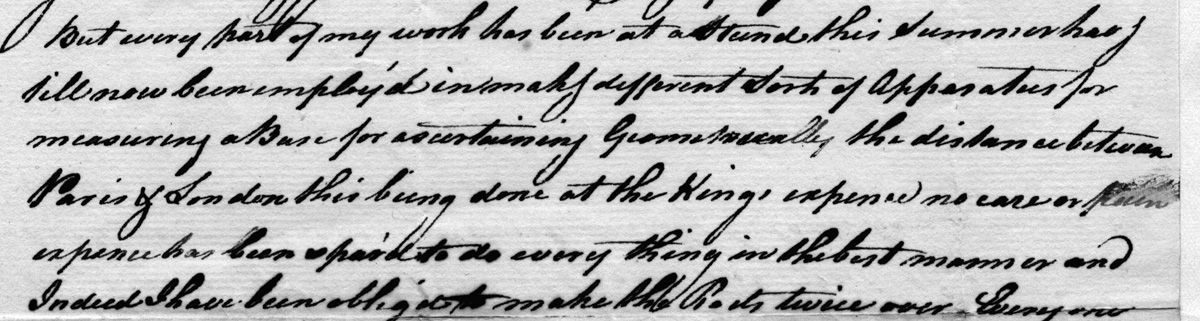 But every part of my work has been at a Stand this Summer hav͡g
till now been employ'd in mak͡g different Sorts of Apparatus for
measuring a Base for ascertaining Geometrically the distance between
Paris & London this being done at the Kings expence no care or
expence has been spair'd to do every thing in the best manner and
Indeed I have been obliged to make the Rods twice over Every one